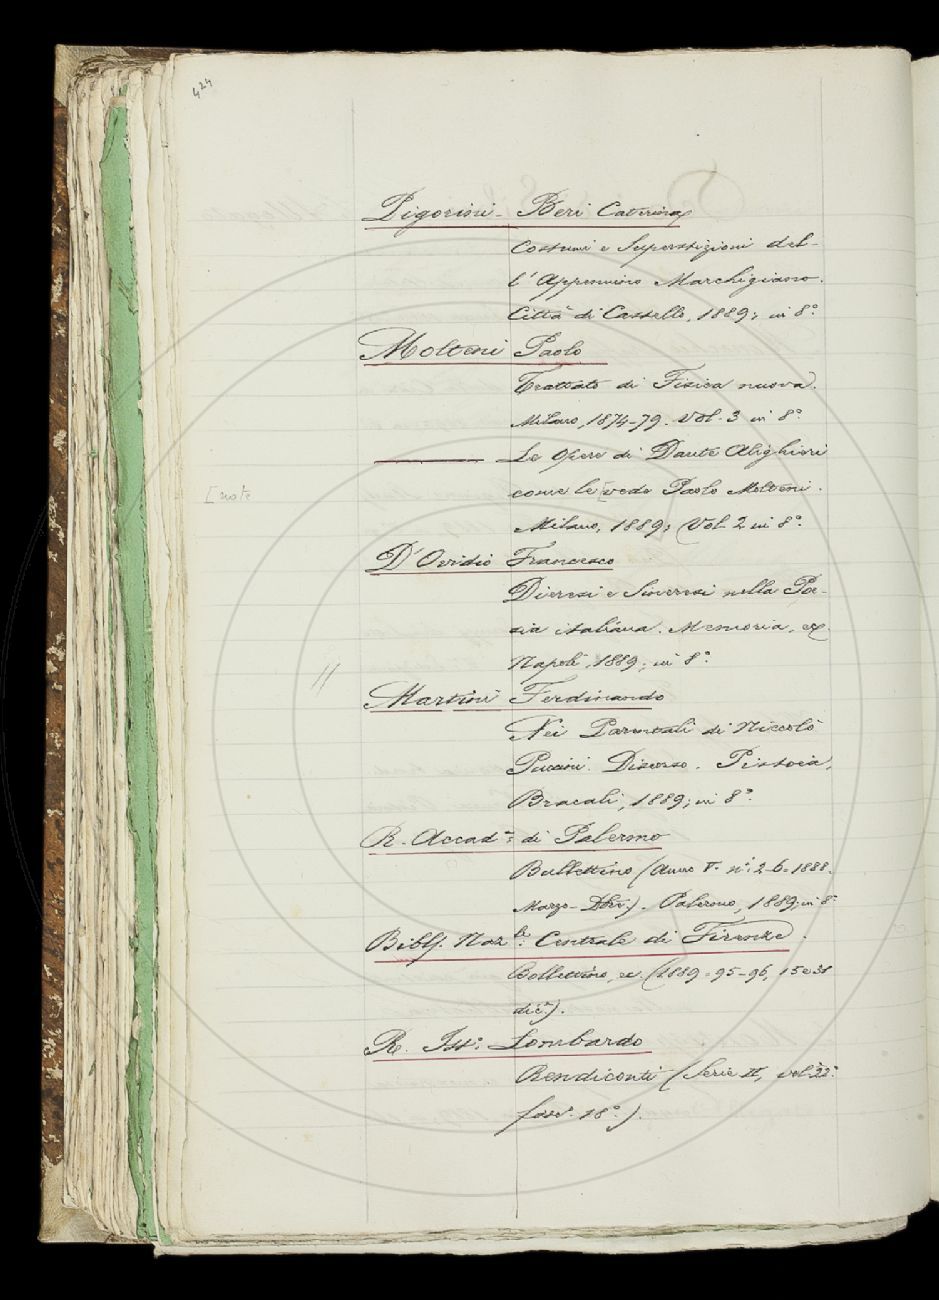 424
Pigorini-Beri Caterina
Costumi e Superstizioni del-
l'Appennino Marchigiano.
Città di Castello, 1889; in 8°.
Molteni Paolo
Trattato di Fisica nuova.
Milano, 1874-79. Vol. 3 in 8°.
——— Le Opere di Dante Alighieri
[note
come le [vede Paolo Molteni.
Milano, 1889; Vol. 2 in 8°.
D'Ovidio Francesco
Dieresi e Sineresi nella Poe-
sia italiana. Memoria, ec.
Napoli, 1889; in 8°.
//
Martini Ferdinando
Nei Parentali di Niccolò
Puccini. Discorso. Pistoia,
Bracali, 1889; in 8°.
R. Accad.ª di Palermo
Bullettino (Anno V. n.i 2-6. 1888.
Marzo-Dbre.). Palermo, 1889; in 8°
Bibl. Naz.le Centrale di Firenze.
Bollettino, ec. (1889 = 95-96, 15 e 31
dic.e).
R. Ist.° Lombardo
Rendiconti (Serie II, vol. 22°.
fasc. 18°.).